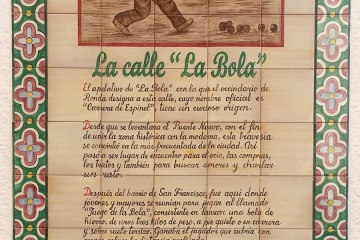 La calle "La Bola"
El apelativo de "La Bola" con la que el vecindario de
Ronda designa a esta calle, cuyo nombre oficial es
"Carrera de Espinel", tiene un curioso origen.
Desde que se levantara el Puente Nuevo, con el fin
de unir la zona histórica con la moderna, esta travesía
se convirtió en la más frecuentada de la ciudad. Así
pasó a ser lugar de encuentro para el ocio, las compras,
los tratos y también para buscar amores y charlar
un rato.
Después del barrio de San Francisco, fue aquí donde
jóvenes y mayores se reunían para jugar al llamado
"Juego de la Bola", consistente en lanzar una bola de
hierro, de unos tres kilos de peso, a pie quieto o en carrera
y sobre suelo terrizo. Ganaba el jugador que cubría con